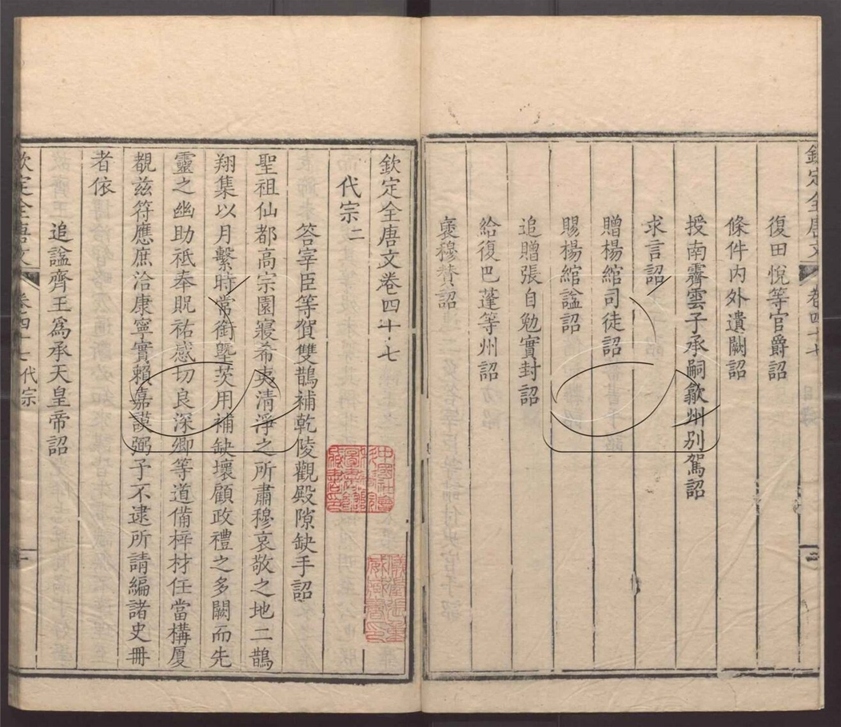 欽定全唐文 卷四十七 目錄
復田悅等官爵詔
條件內外遺闕詔
授南霽雲子承嗣歙州別駕詔
求言詔
贈楊綰司徒詔
賜楊綰諡詔
追贈張自勉實封詔
給復巴蓬等州詔
褒穆贊詔
欽定全唐文卷四十七
代宗二
答宰臣等賀雙鵲補乾陵觀殿隙缺手詔
聖祖仙都高宗園寢希夷清淨之所肅穆哀敬之地二鵲
翔集以月繫時常銜墍茨用補缺壞顧政禮之多闕而先
靈之幽助祗奉貺祐感切良深卿等道備梓材任當構厦
覩茲符應庶洽康寧實賴嘉謨弼予不逮所請編諸史冊
者依
追諡齊王爲承天皇帝詔
欽定全唐文 卷四十七 代宗 一